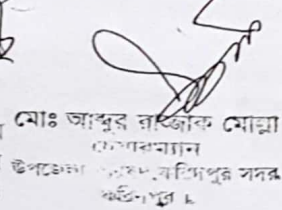 মোঃ আব্দুর রাজ্জাক মোল্লা
চেয়ারম্যান
উপজেলা পরিষদ, ফরিদপুর সদর
ফরিদপুর ।